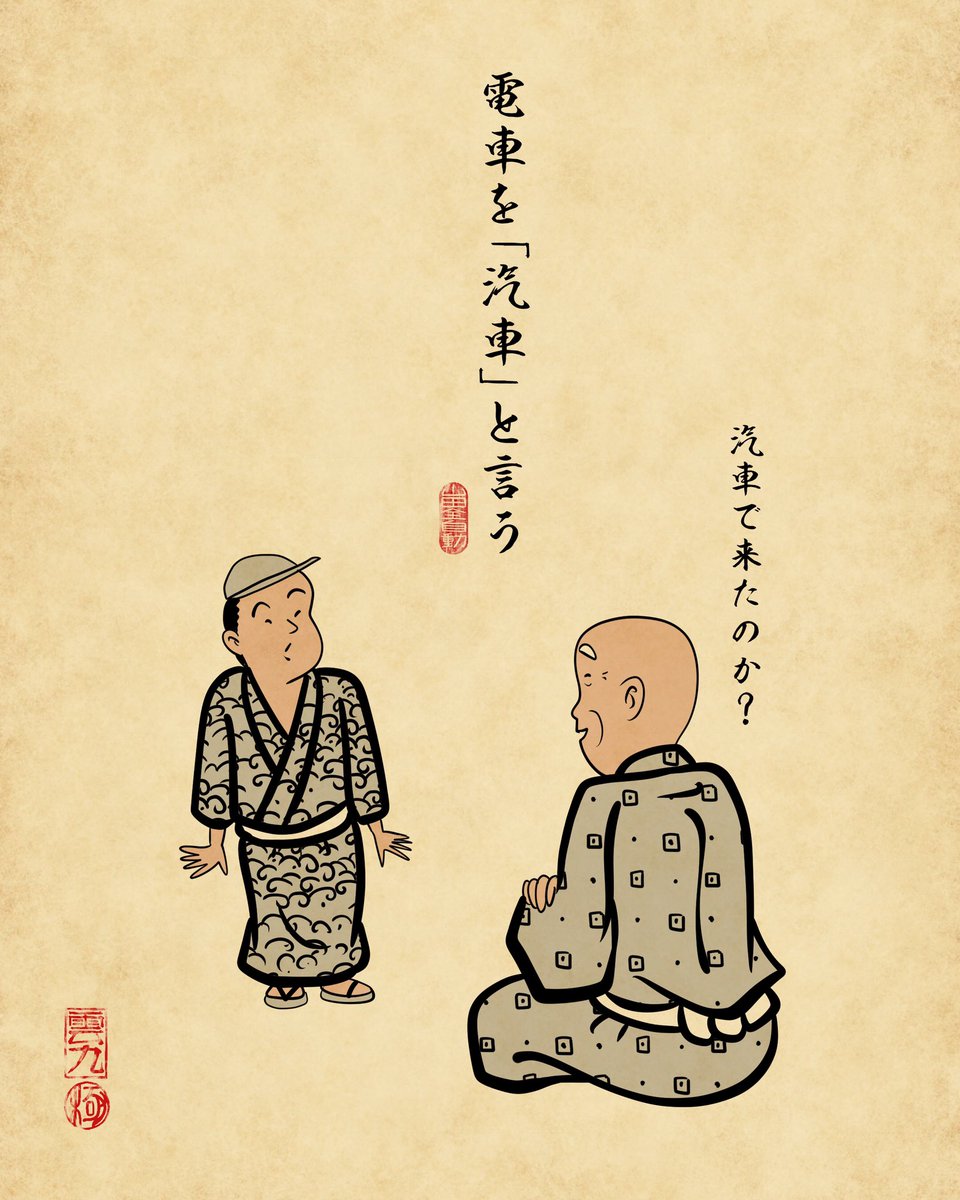 電車を「汽車」と言う
汽車で来たのか？